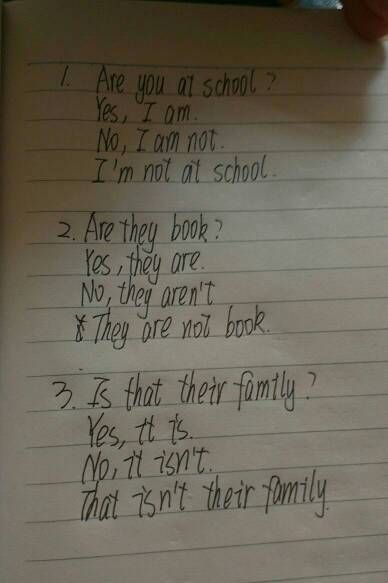 1. Are you at school?
Yes, I am.
No, I am not.
I'm not at school.
2. Are they book?
Yes, they are.
No, they aren't
They are not book.
3. Is that their family?
Yes, it is.
No, it isn't.
That isn't their family.